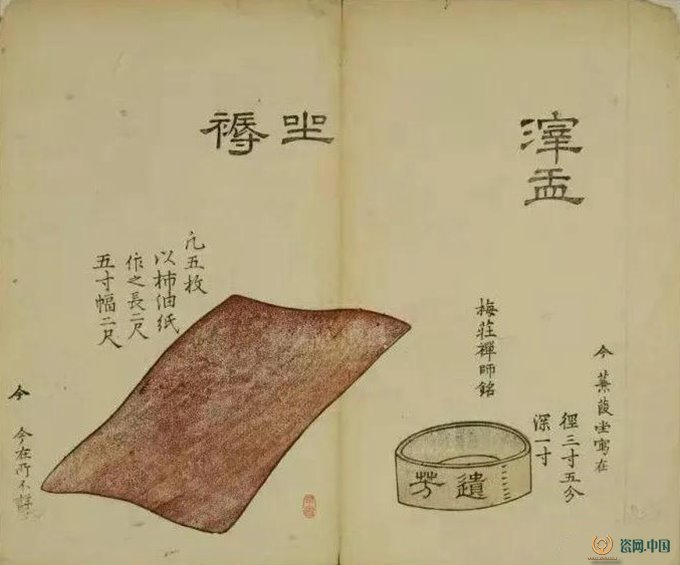 滓盂
今 蒹葭坣寓在
徑三寸五分
深一寸
梅莊禪師銘
遺芳
坐褥
凡五枚
以柿油紙
作之長二尺
五寸幅二尺
今 今在所不詳
瓷网.中国